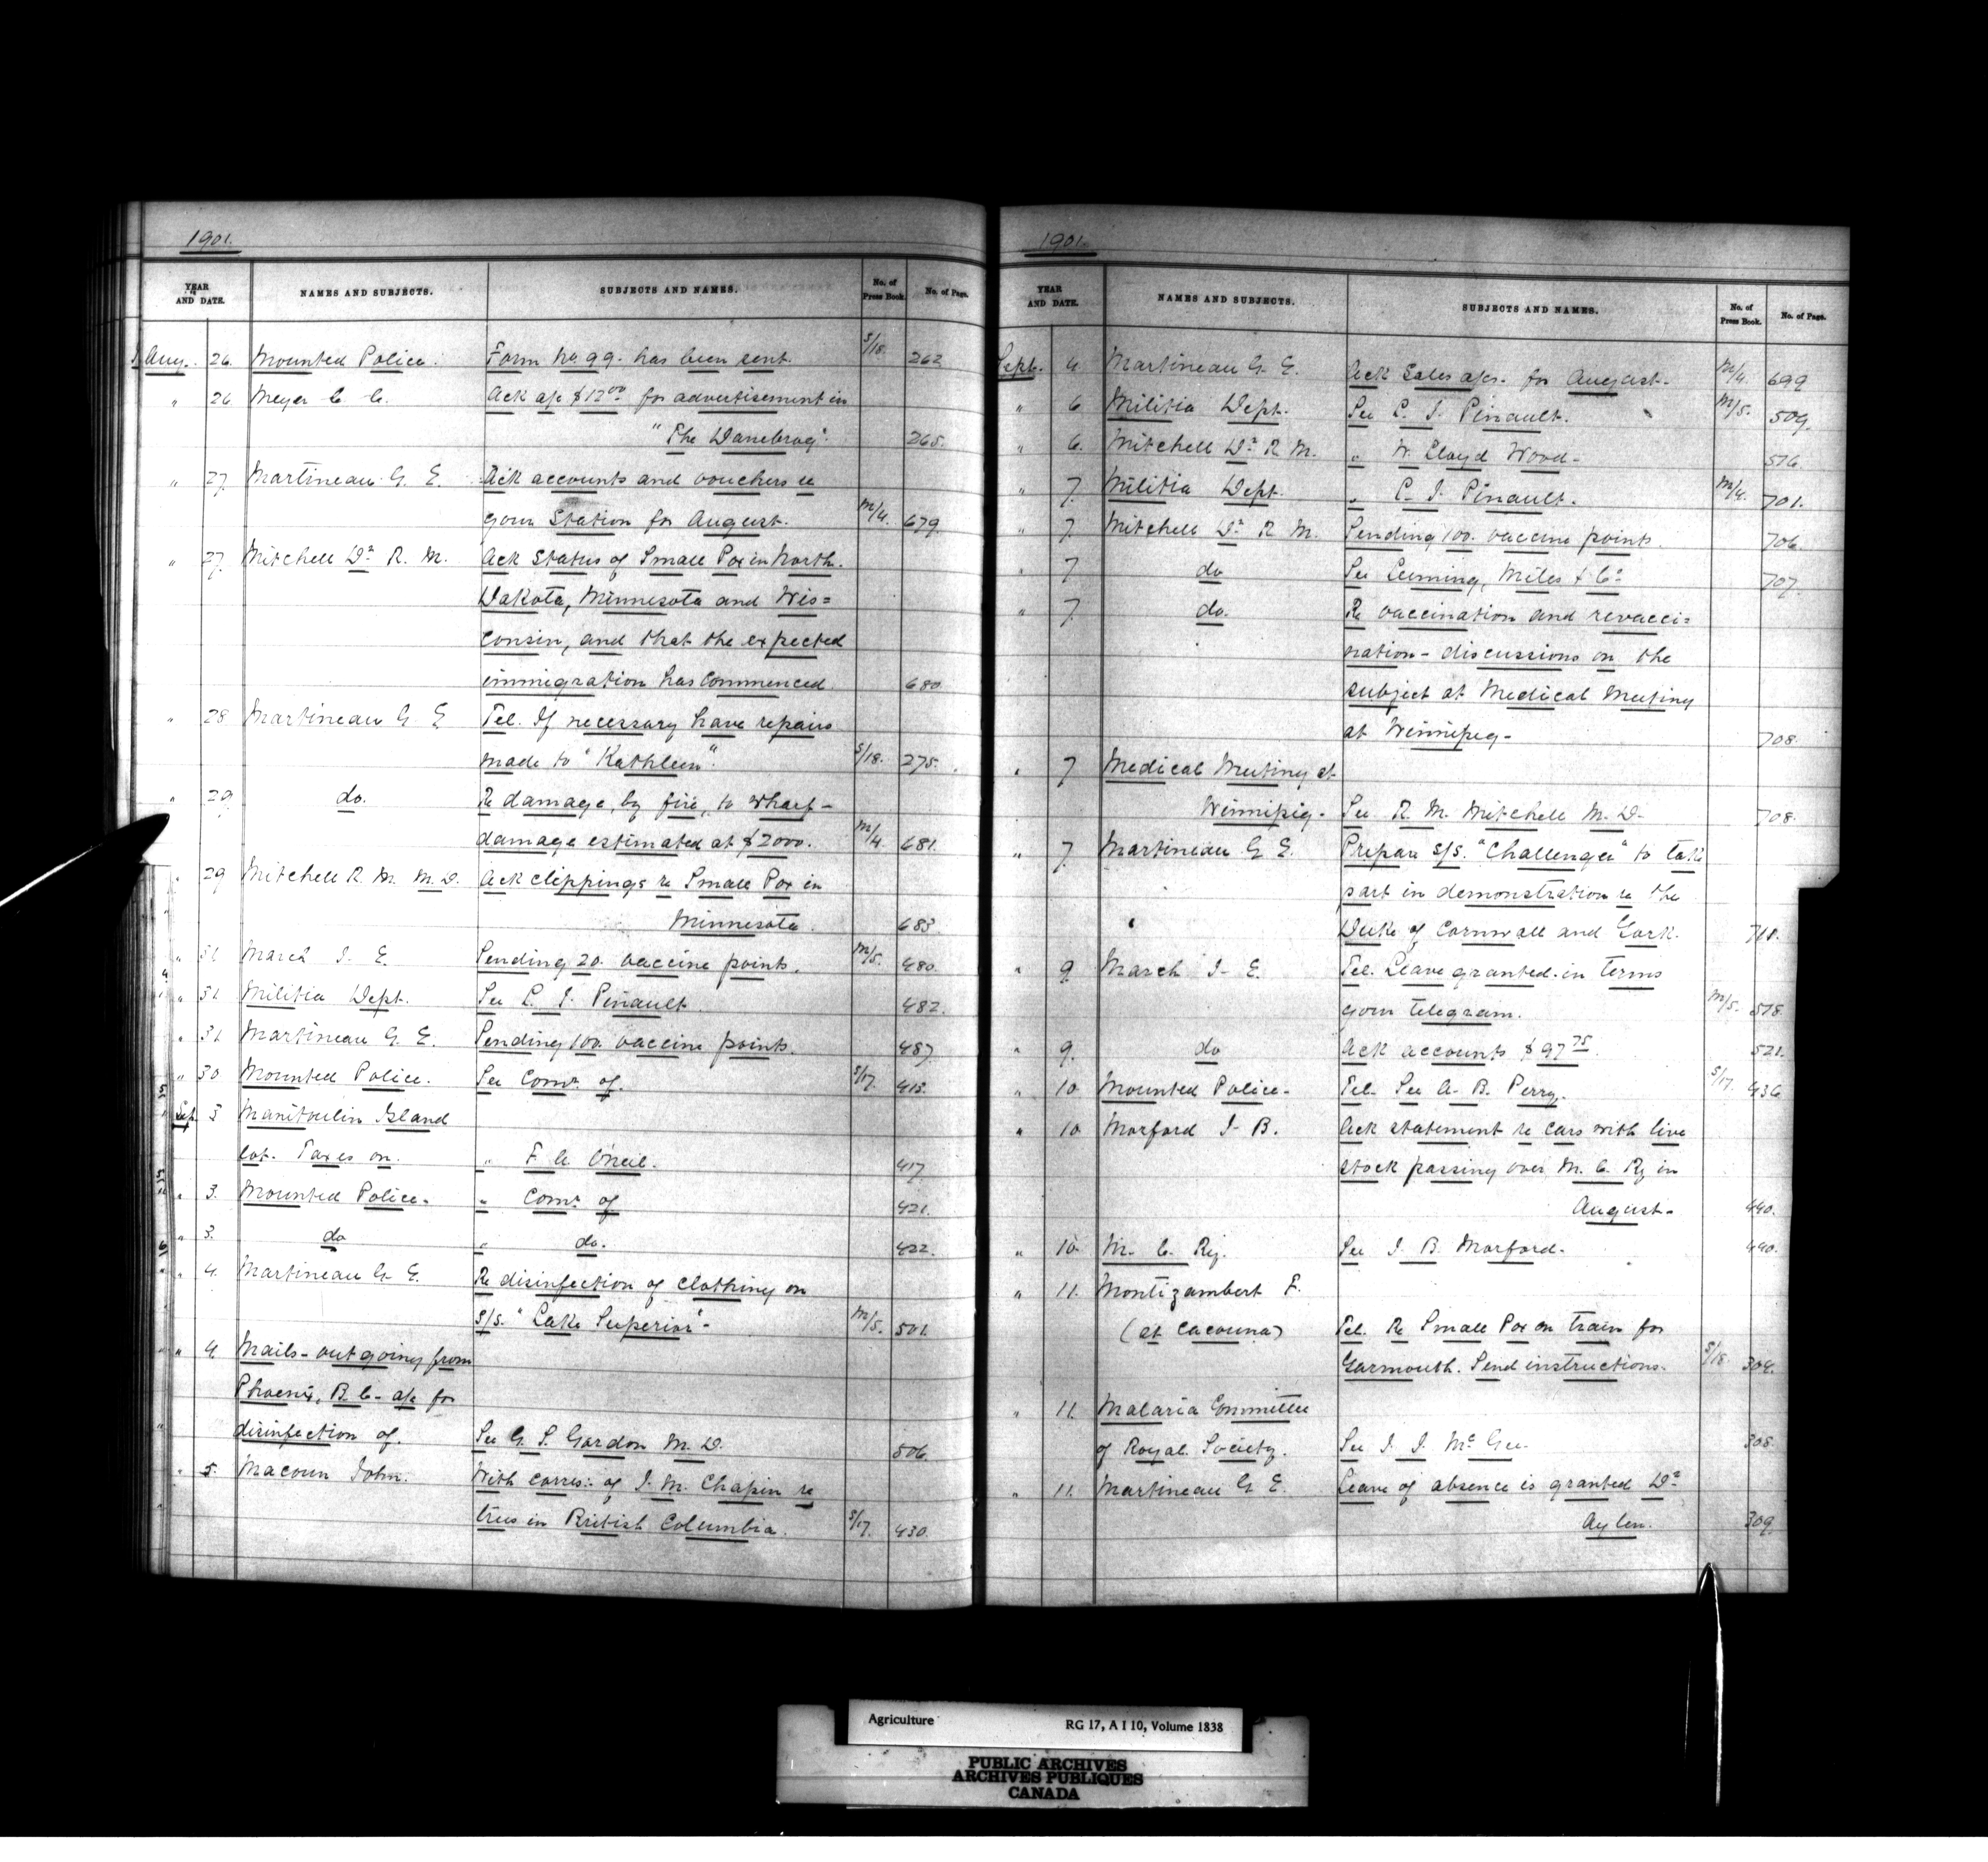 1901.
YEAR AND DATE. NAMES AND SUBJECTS. SUBJECTS AND NAMES. No. of Press Book. No. of Page.
Aug. 26 Mounted Police. Form No 99. has been sent. S/18. 262
" 26 Meyer C. C. Ack a/c $12.00 for advertisement in
"The Danebrog". 265.
" 27. Martineau G. E. Ack accounts and vouchers re
your Station for August. M/4. 679.
" 27. Mitchell Dr R. M. Ack Status of Small Pox in North.
Dakota, Minnesota and Wis=
consin, and that the expected
immigration has commenced. 680
" 28 Martineau G. E Tel. If necessary have repairs
made to "Kathleen". S/18. 275.
" 29. do. Re damage, by fire, to wharf-
damage estimated at $2000. M/4. 681.
" 29 Mitchell R. M. M.D. Ack clippings re Small Pox in
Minnesota. 683.
" 31 March J. E. Sending 20. vaccine points. M/5. 480.
" 31. Militia Dept. See L. F. Pinault. 482.
" 31 Martineau G. E. Sending 100. vaccine points. 487
" 30 Mounted Police. See Comr. of. S/17. 413.
Sep. 3 Manitoulin Island
lot. Taxes on. " F. A. O'Neil. 417
" 3. Mounted Police. " Comr. of 421.
" 3. do " do. 422.
" 4. Martineau G. E. Re disinfection of clothing on
S/S. "Lake Superior". M/5. 501.
" 4. Mails-outgoing from
Phoenix, B.C. a/c for
disinfection of. See G. S. Gordon M.D. 506.
" 5. Macoun John. With corres: of J. M. Chapin re
trees in British Columbia. S/17. 430.
1901.
YEAR AND DATE. NAMES AND SUBJECTS. SUBJECTS AND NAMES. No. of Press Book. No. of Page.
Sept. 4. Martineau G. E. Ack Sales a/cs. for August. M/4. 699
" 6 Militia Dept. See L. F. Pinault. M/5. 509.
" 6. Mitchell Dr R. M. " W. Lloyd Wood- 516
" 7. Militia Dept. " L. F. Pinault. M/4. 701.
" 7. Mitchell Dr R. M. Sending 100. vaccine points. 706
" 7. do See Leeming, Miles & Co 707.
" 7. do. Re vaccination and revacci=
nation-discussions on the
subject at Medical Meeting
at Winnipeg- 708.
" 7 Medical Meeting at
Winnipeg- See R. M. Mitchell M.D- 708.
" 7. Martineau G. E. Prepare S/S. "Challenger" to take
part in demonstration re the
Duke of Cornwall and York. 711.
" 9 March J- E. Tel. Leave granted-in terms
your telegram. M/5. 518.
" 9. do Ack accounts $97.75. 521.
" 10 Mounted Police- Tel. See A. B. Perry. S/17. 436
" 10 Morford J- B. Ack statement re cars with live
stock passing over M. C. Ry in
August- 440.
" 10 M. C. Ry. See J. B. Morford- 440.
" 11. Montizambert F.
(at Cacouna) Tel. Re Small Pox on train for
Yarmouth. Send instructions. S/18 304.
" 11. Malaria Committee
of Royal Society. See J. J. McGee- 308.
" 11. Martineau G. E. Leave of absence is granted Dr
Aylen. 309.
Agriculture RG 17, A I 10, Volume 1838
PUBLIC ARCHIVES
ARCHIVES PUBLIQUES
CANADA